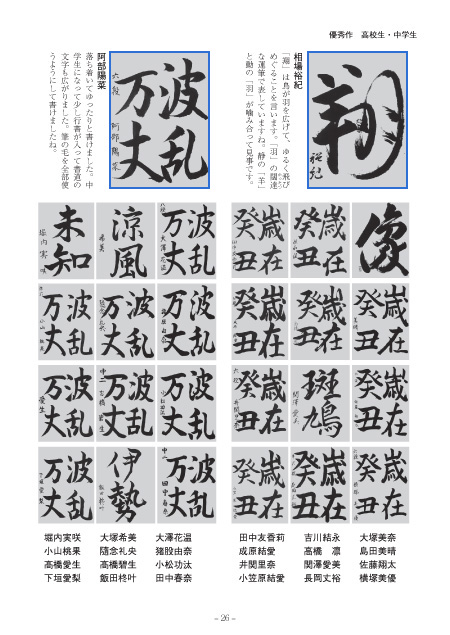 優秀作　高校生・中学生
相場裕紀
「翔」は鳥が羽を広げて、ゆるく飛び
めぐることを言います。「羽」の闊達
な運筆で表していますね。静の「羊」
と動の「羽」が噛み合って見事です。
翔
裕紀
阿部陽菜
落ち着いてゆったりと書けました。中
学生になって少し行書が入って書道の
文字も広がりました。筆の毛を全部使
うようにして書けましたね。
波乱
万丈
六段 阿部陽菜
像
歳在
癸丑
歳在
癸丑
波乱
万丈
涼風
未知
堀内実咲
歳在
癸丑
歳在
癸丑
歳在
癸丑
波乱
万丈
波乱
万丈
波乱
万丈
歳在
癸丑
斑鳩
歳在
癸丑
波乱
万丈
波乱
万丈
波乱
万丈
歳在
癸丑
歳在
癸丑
歳在
癸丑
波乱
万丈
伊勢
波乱
万丈
堀内実咲　大塚希美　大澤花温
小山桃果　隨念礼央　猪股由奈
髙橋愛生　高橋碧生　小松功汰
下垣愛梨　飯田柊叶　田中春奈
田中友香莉　吉川結永　大塚美奈
成原結愛　高橋　凛　島田美晴
井関里奈　関澤愛美　佐藤翔太
小笠原結愛　長岡丈裕　横塚美優
– 26 –